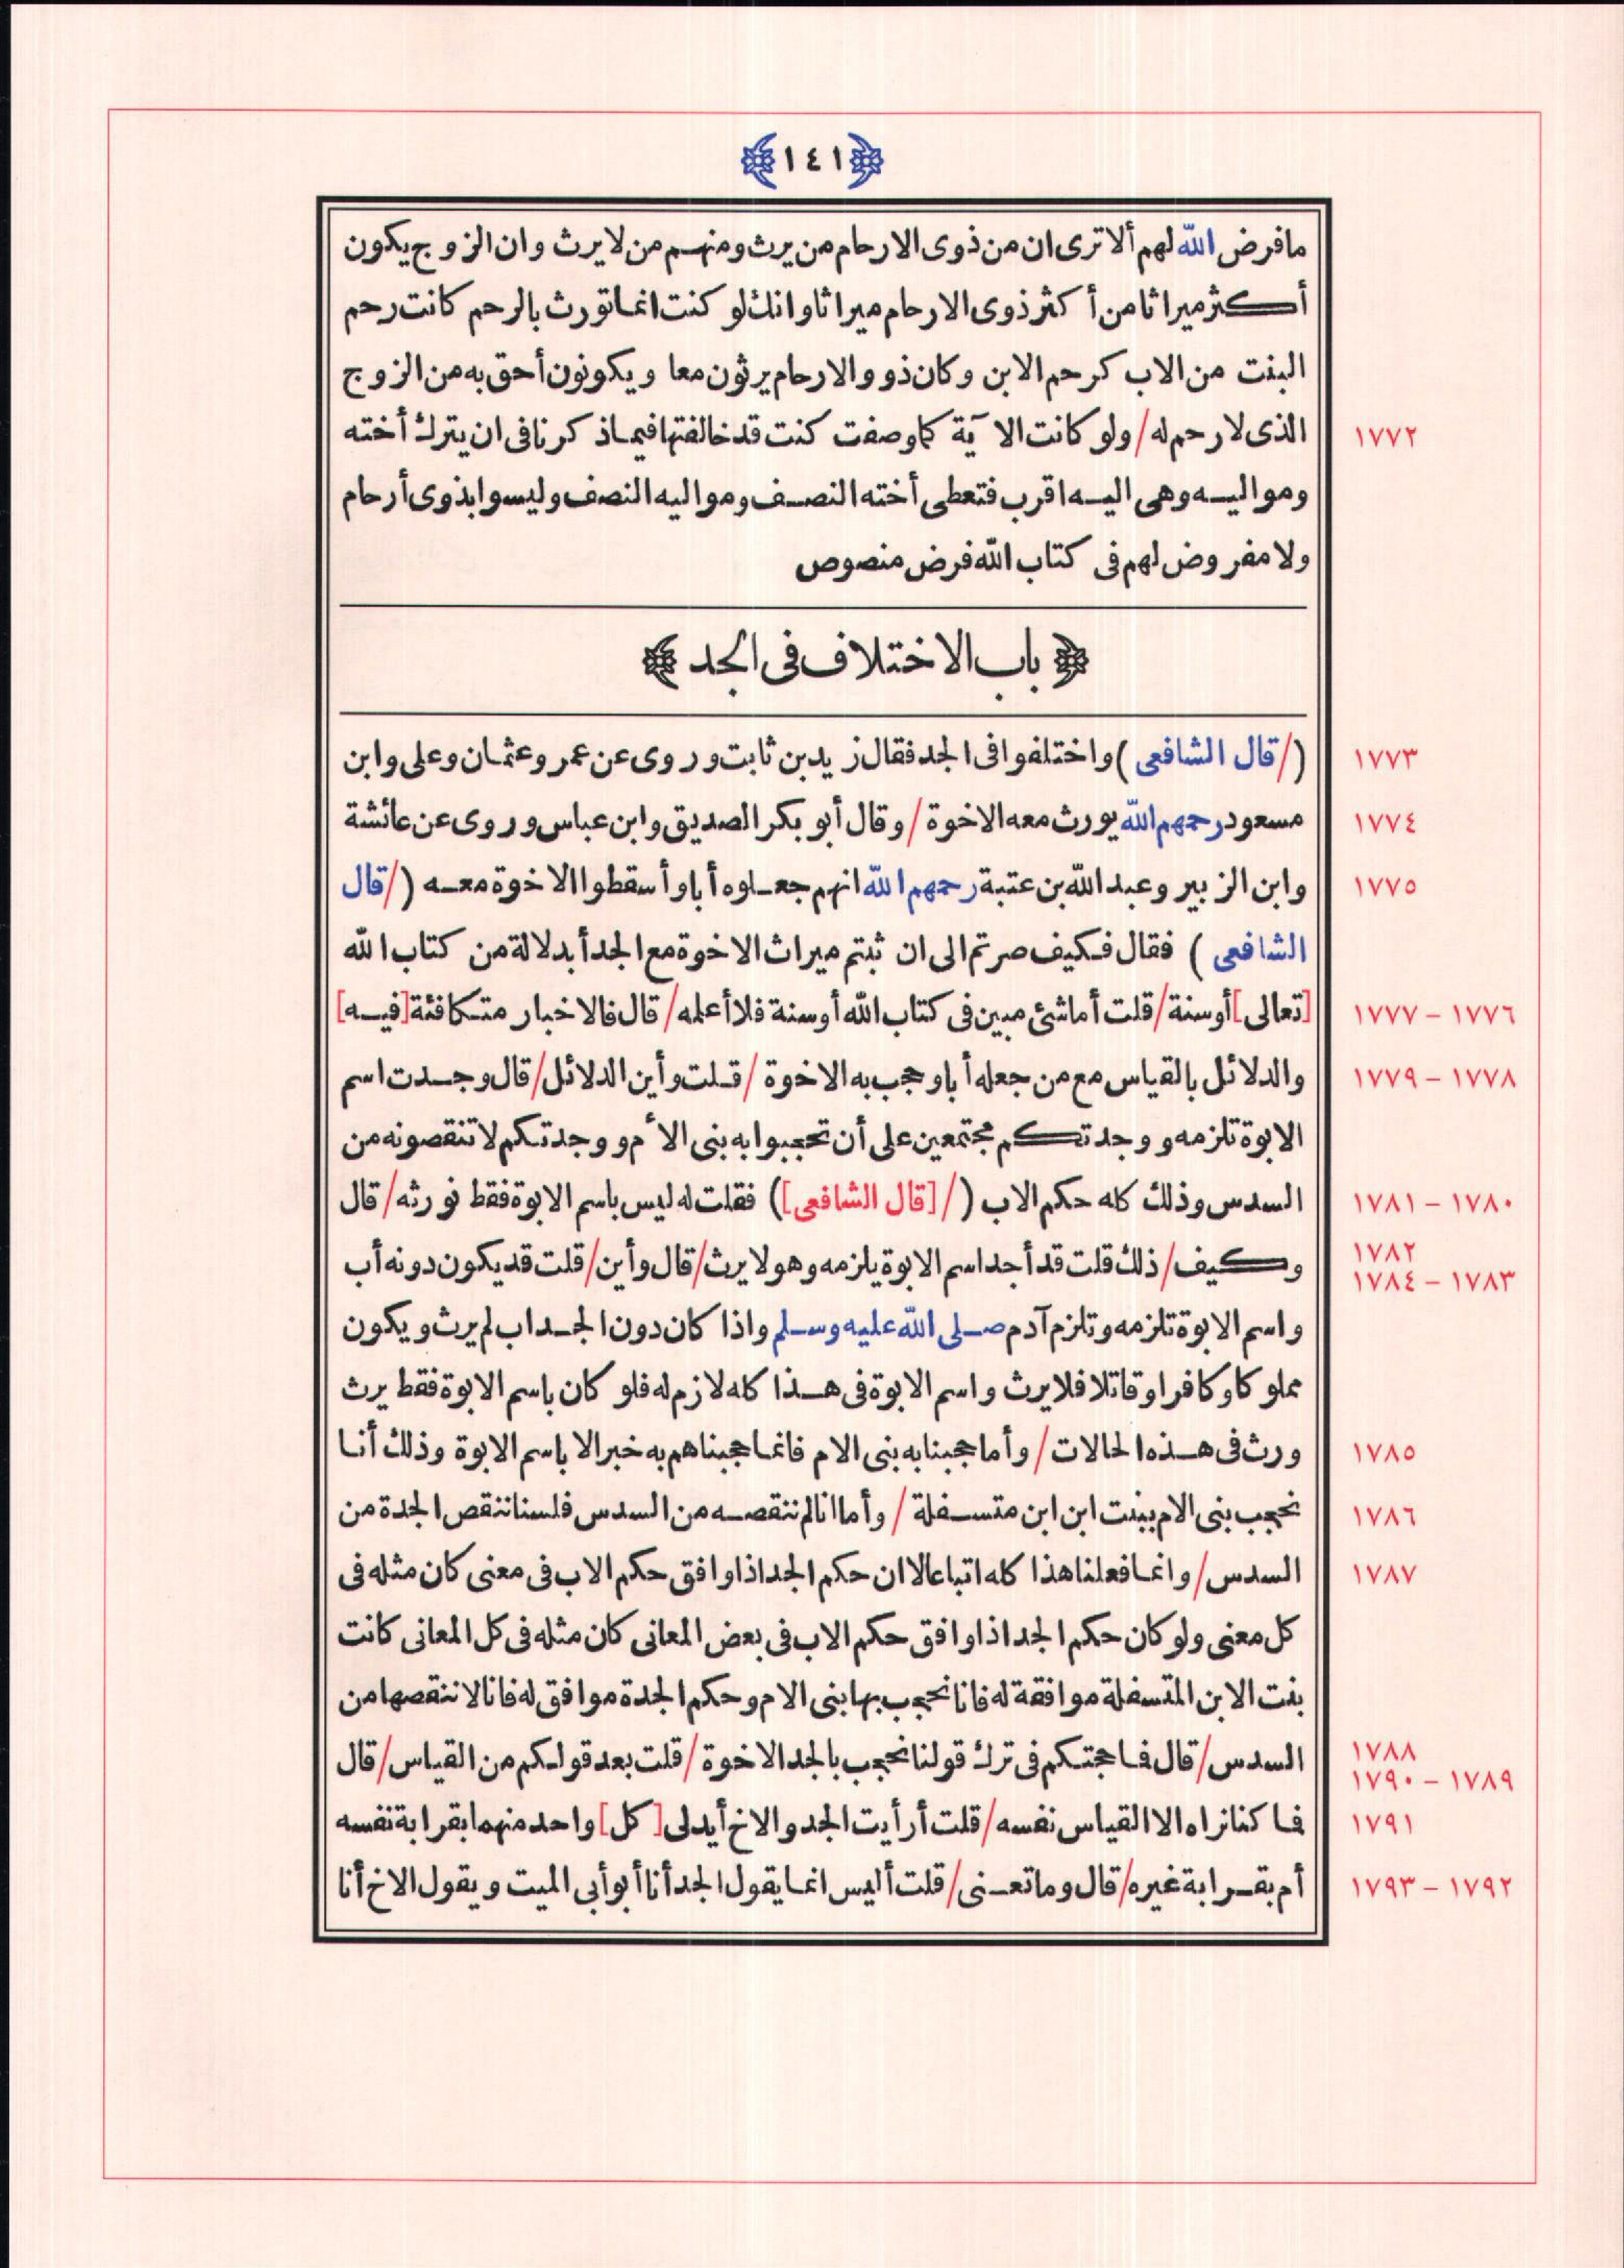 ١٤١
مافرض الله لهم ألا ترى ان من ذوى الارحام من يرث ومنهم من لا يرث وان الزوج يكون
أكثر ميراثا من أكثر ذوى الارحام ميراثا وانك لو كنت انما تورث بالرحم كانت رحم
البنت من الاب كرحم الابن وكان ذوو الارحام يرثون معا ويكونون أحق به من الزوج
الذى لا رحم له / ولو كانت الآية كما وصفت كنت قد خالفتها فيما ذكرنا فى ان يترك أخته ١٧٧٢
ومواليه وهى اليه اقرب فتعطى أخته النصف ومواليه النصف وليسوا بذوى أرحام
ولا مفروض لهم فى كتاب الله فرض منصوص
باب الاختلاف فى الجد
(/ قال الشافعى ) واختلفوا فى الجد فقال زيد بن ثابت وروى عن عمر وعثمان وعلى وابن ١٧٧٣
مسعود رحمهم الله يورث معه الاخوة / وقال أبو بكر الصديق وابن عباس وروى عن عائشة ١٧٧٤
وابن الزبير وعبد الله بن عتبة رحمهم الله انهم جعلوه أبا وأسقطوا الاخوة معه (/ قال ١٧٧٥
الشافعى ) فقال فكيف صرتم الى ان ثبتم ميراث الاخوة مع الجد أبدلالة من كتاب الله
[تعالى] أو سنة / قلت أما شئ مبين فى كتاب الله أو سنة فلا أعلمه / قال فالاخبار متكافئة [فيه] ١٧٧٦ – ١٧٧٧
والدلائل بالقياس مع من جعله أبا وحجب به الاخوة / قلت وأين الدلائل / قال وجدت اسم ١٧٧٨ – ١٧٧٩
الابوة تلزمه ووجدتكم مجتمعين على أن تحجبوا به بنى الأم ووجدتكم لا تنقصونه من
السدس وذلك كله حكم الاب (/ [قال الشافعى]) فقلت له ليس باسم الابوة فقط نورثه / قال ١٧٨٠ – ١٧٨١
وكيف / ذلك قلت قد أجد اسم الابوة يلزمه وهو لا يرث / قال وأين / قلت قد يكون دونه أب ١٧٨٢ ١٧٨٣ – ١٧٨٤
واسم الابوة تلزمه وتلزم آدم صلى الله عليه وسلم واذا كان دون الجد اب لم يرث ويكون
مملوكا وكافرا وقاتلا فلا يرث واسم الابوة فى هذا كله لازم له فلو كان باسم الابوة فقط يرث
ورث فى هذه الحالات / وأما حجبنا به بنى الام فانما حجبناهم به خبرا لا باسم الابوة وذلك أنا ١٧٨٥
نحجب بنى الام ببنت ابن ابن متسفلة / وأما انا لم ننقصه من السدس فلسنا ننقص الجدة من ١٧٨٦
السدس / وانما فعلنا هذا كله اتباعا لا ان حكم الجد اذا وافق حكم الاب فى معنى كان مثله فى ١٧٨٧
كل معنى ولو كان حكم الجد اذا وافق حكم الاب فى بعض المعانى كان مثله فى كل المعانى كانت
بنت الابن المتسفلة موافقة له فانا نحجب بها بنى الام وحكم الجدة موافق له فانا لا ننقصها من
السدس / قال فما حجتكم فى ترك قولنا نحجب بالجد الاخوة / قلت بعد قولكم من القياس / قال ١٧٨٨ ١٧٨٩ – ١٧٩٠
فما كنا نراه الا القياس نفسه / قلت أرأيت الجد والاخ أيدلى [كل] واحد منهما بقرابة نفسه ١٧٩١
أم بقرابة غيره / قال وما تعنى / قلت أليس انما يقول الجد أنا أبو أبى الميت ويقول الاخ أنا ١٧٩٢ – ١٧٩٣